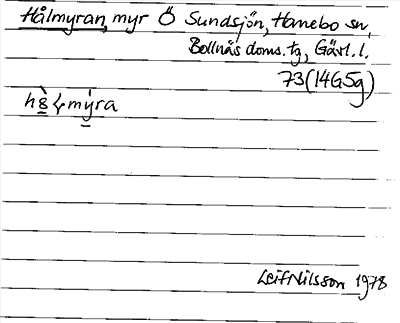 Hålmyran, myr Ö Sundsjön, Hanebo sn,
Bollnäs doms. tg, Gävl. l.
73(14G5g)
mýra
Leif Nilsson 1978